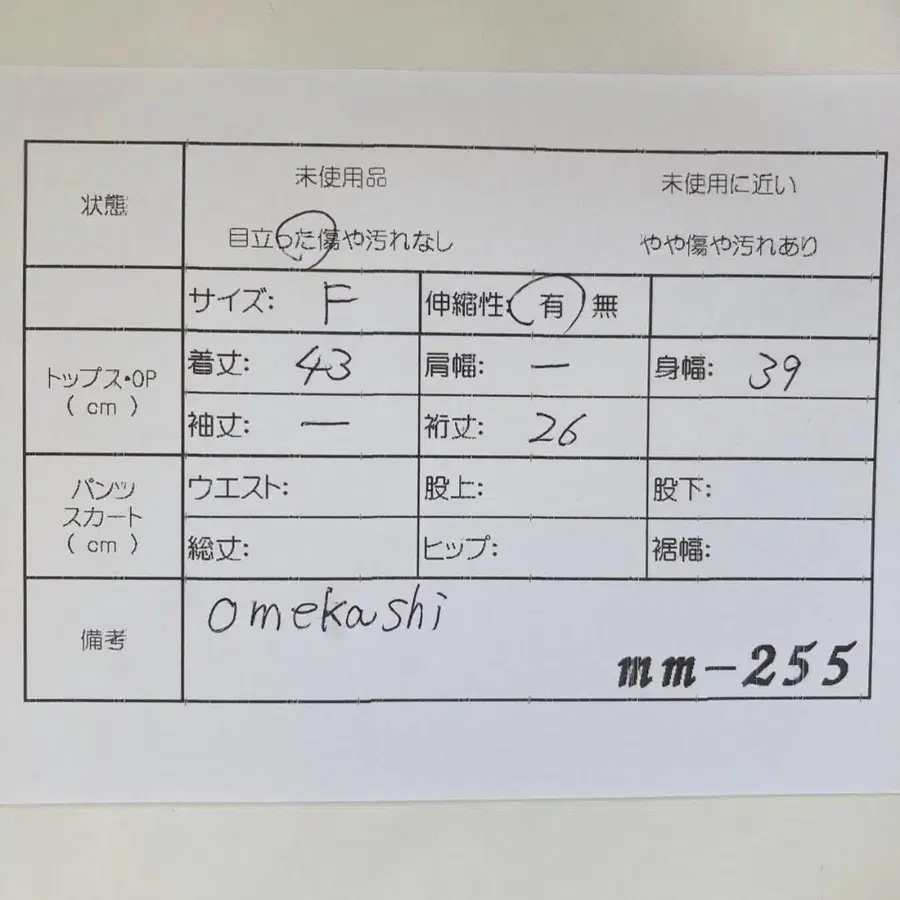 状態
未使用品 未使用に近い
目立った傷や汚れなし やや傷や汚れあり
サイズ: F 伸縮性: 有 無
トップス・OP
( cm )
着丈: 43 肩幅: ー 身幅: 39
袖丈: ー 裄丈: 26
パンツ
スカート
( cm )
ウエスト: 股上: 股下:
総丈: ヒップ: 裾幅:
備考
omekashi
mm-255